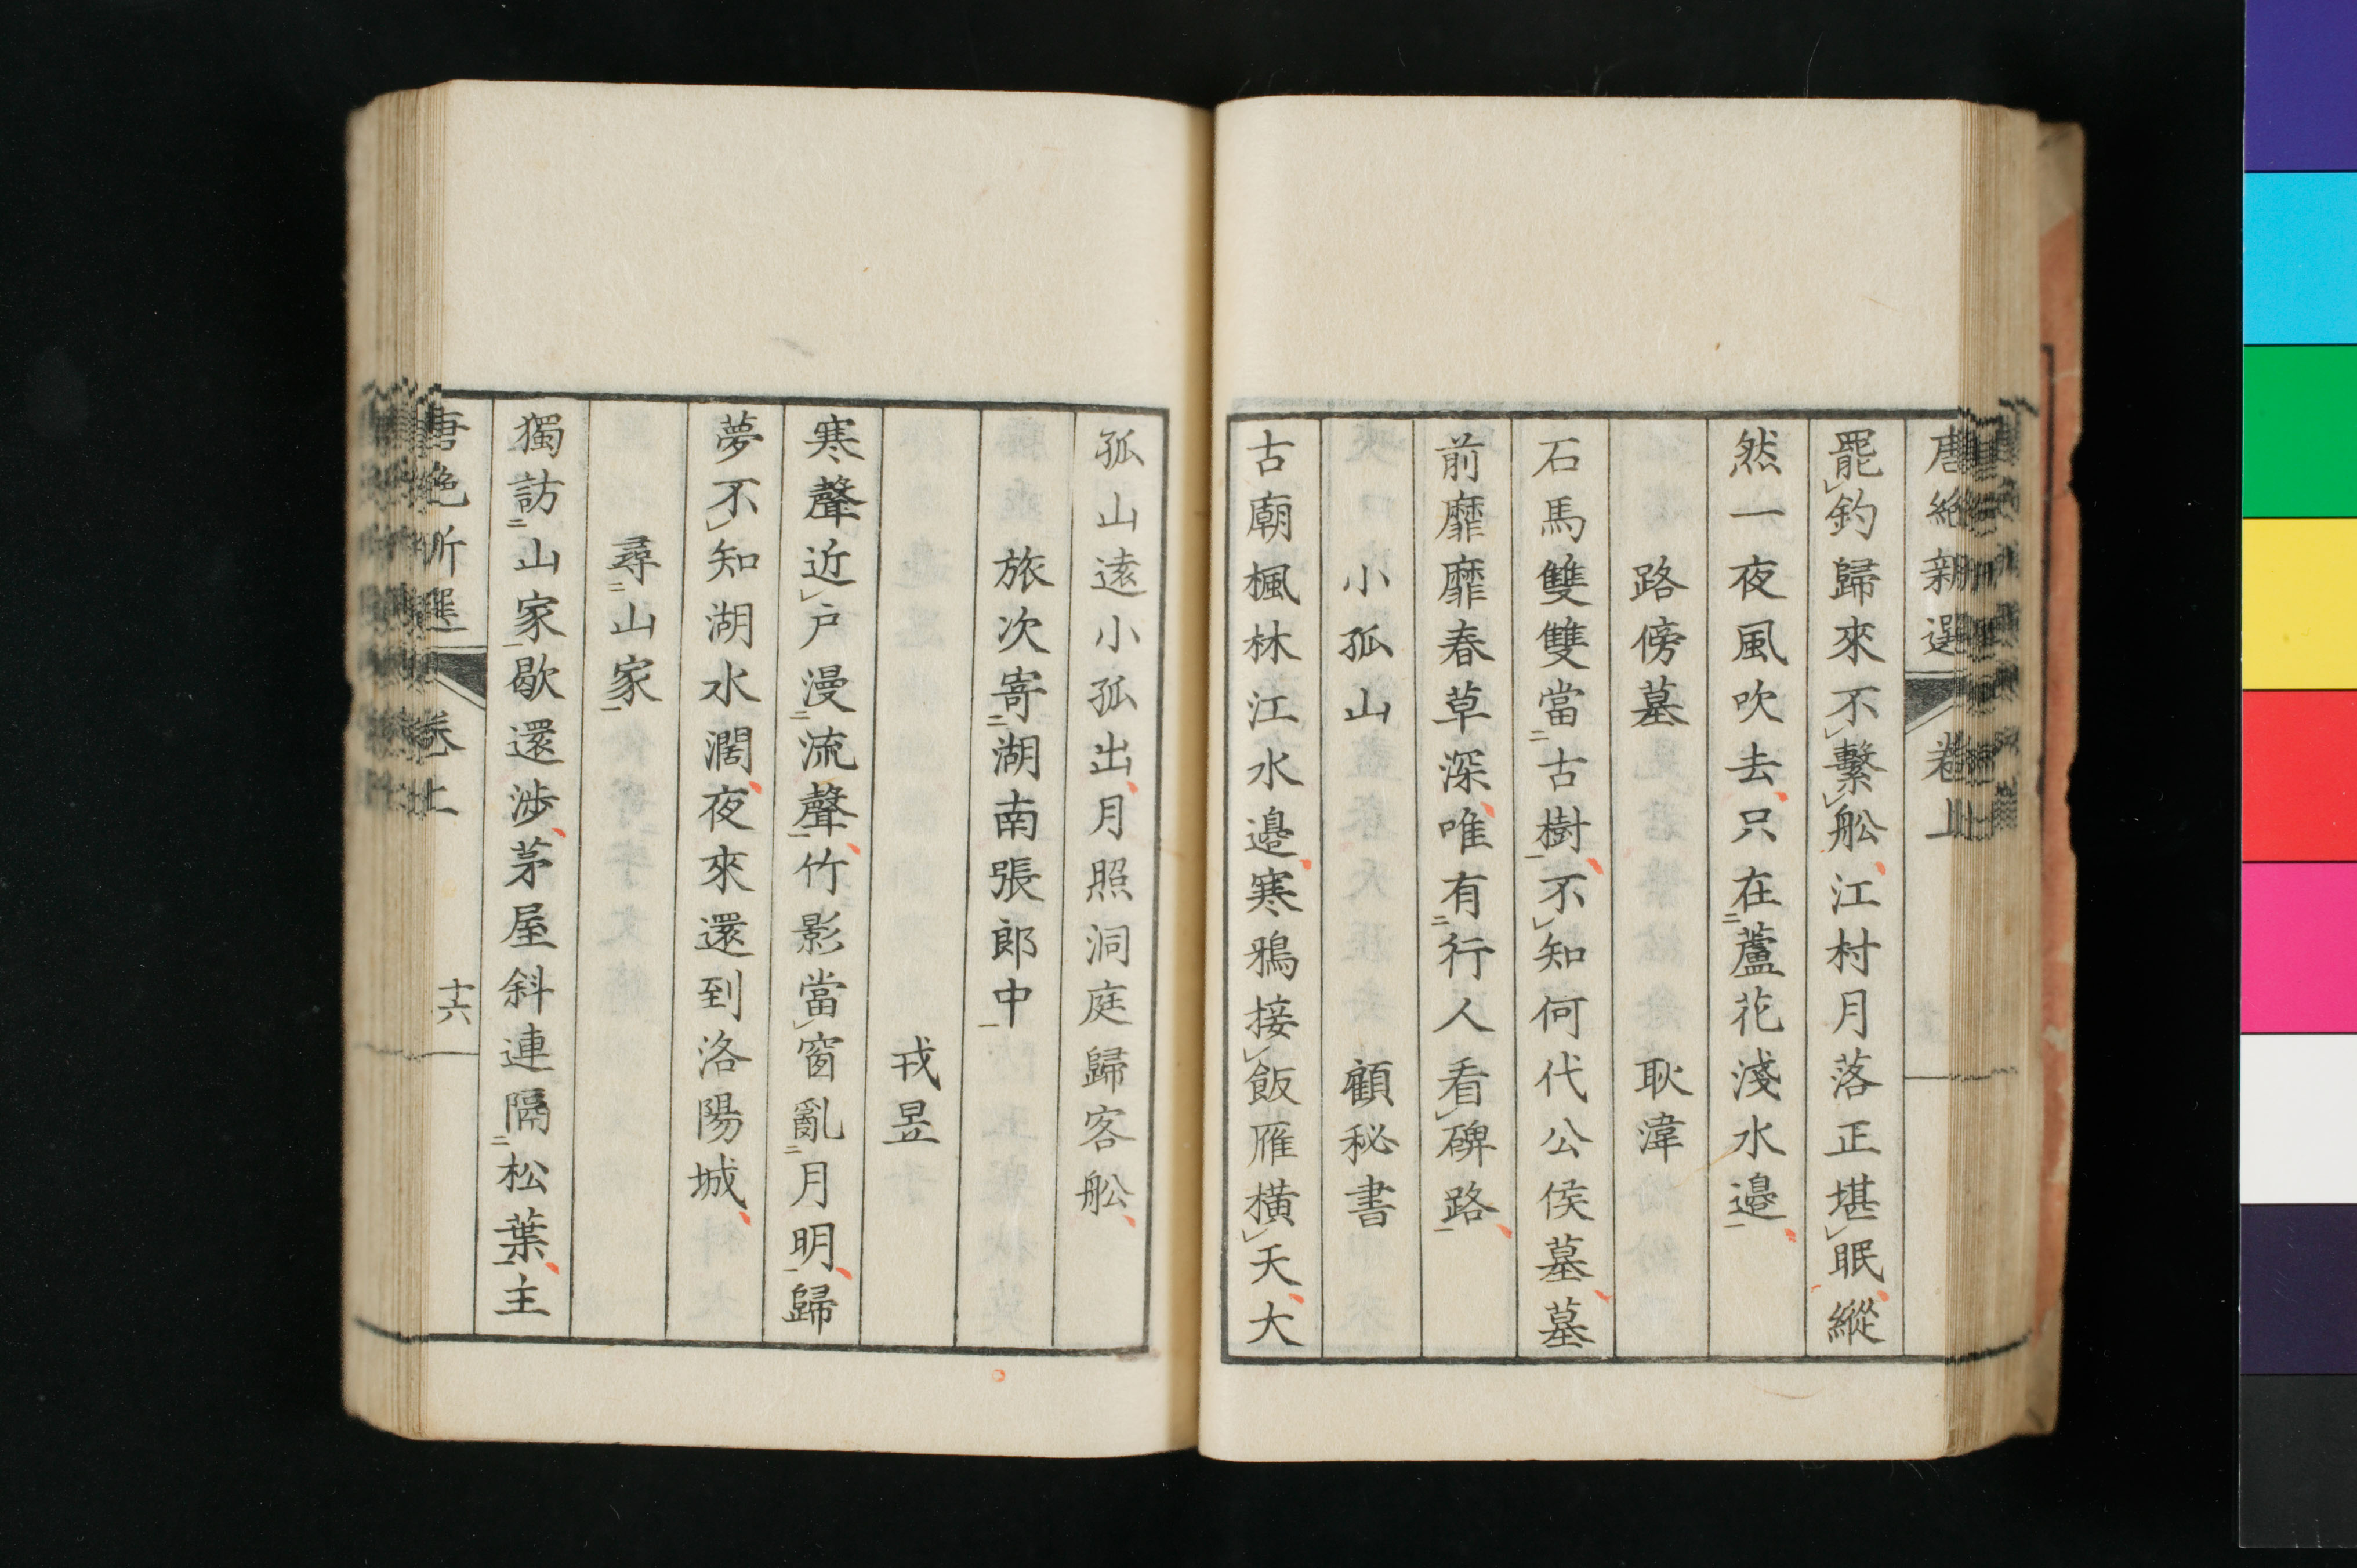 唐絶新選 卷上
罷釣歸來不繫舩江村月落正堪眠縱
然一夜風吹去只在蘆花淺水邉
路傍墓 耿湋
石馬雙雙當古樹不知何代公侯墓墓
前靡靡春草深唯有行人看碑路
小孤山 顧秘書
古廟楓林江水邉寒鴉接飯雁横天大
孤山遠小孤出月照洞庭歸客舩
旅次寄湖南張郎中
戎昱
寒聲近戶漫流聲竹影當窗亂月明歸
夢不知湖水濶夜來還到洛陽城
尋山家
獨訪山家歇還渉茅屋斜連隔松葉主
唐絶新選 卷上 十六